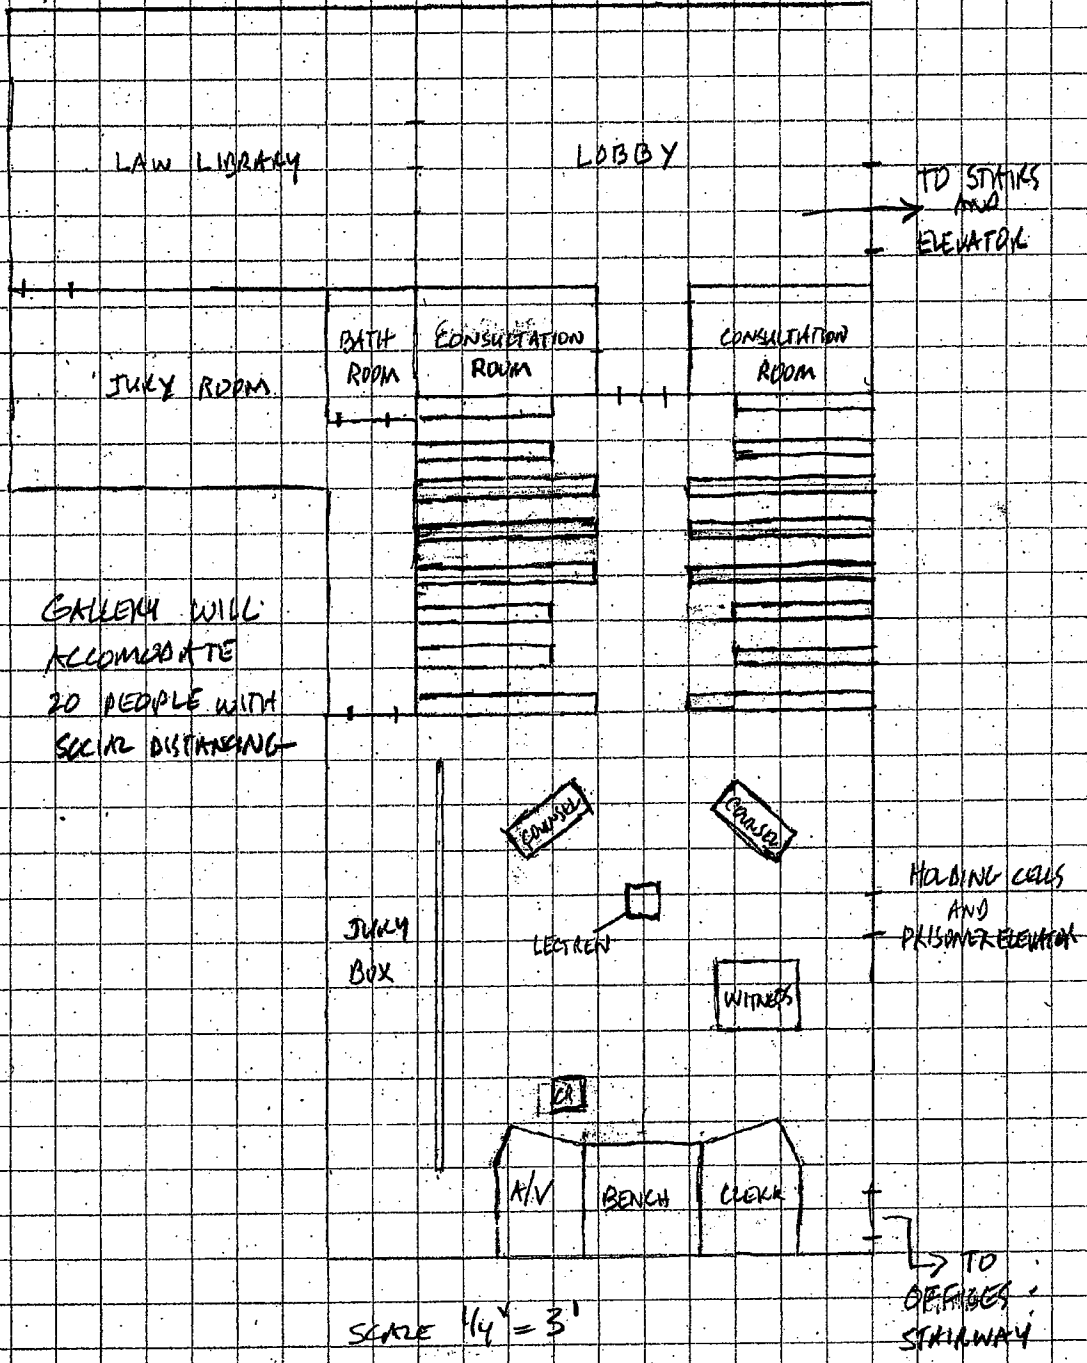 LAW LIBRARY
LOBBY
TO STAIRS
AND
ELEVATOR
BATH
ROOM
CONSULTATION
ROOM
CONSULTATION
ROOM
JURY ROOM
GALLERY WILL
ACCOMODATE
20 PEOPLE WITH
SOCIAL DISTANCING
COUNSEL
COUNSEL
HOLDING CELLS
AND
PRISONER ELEVATOR
JURY
BOX
LECTREN
WITNESS
CR
A/V
BENCH
CLERK
TO
OFFICES
STAIRWAY
SCALE 1/4" = 3'